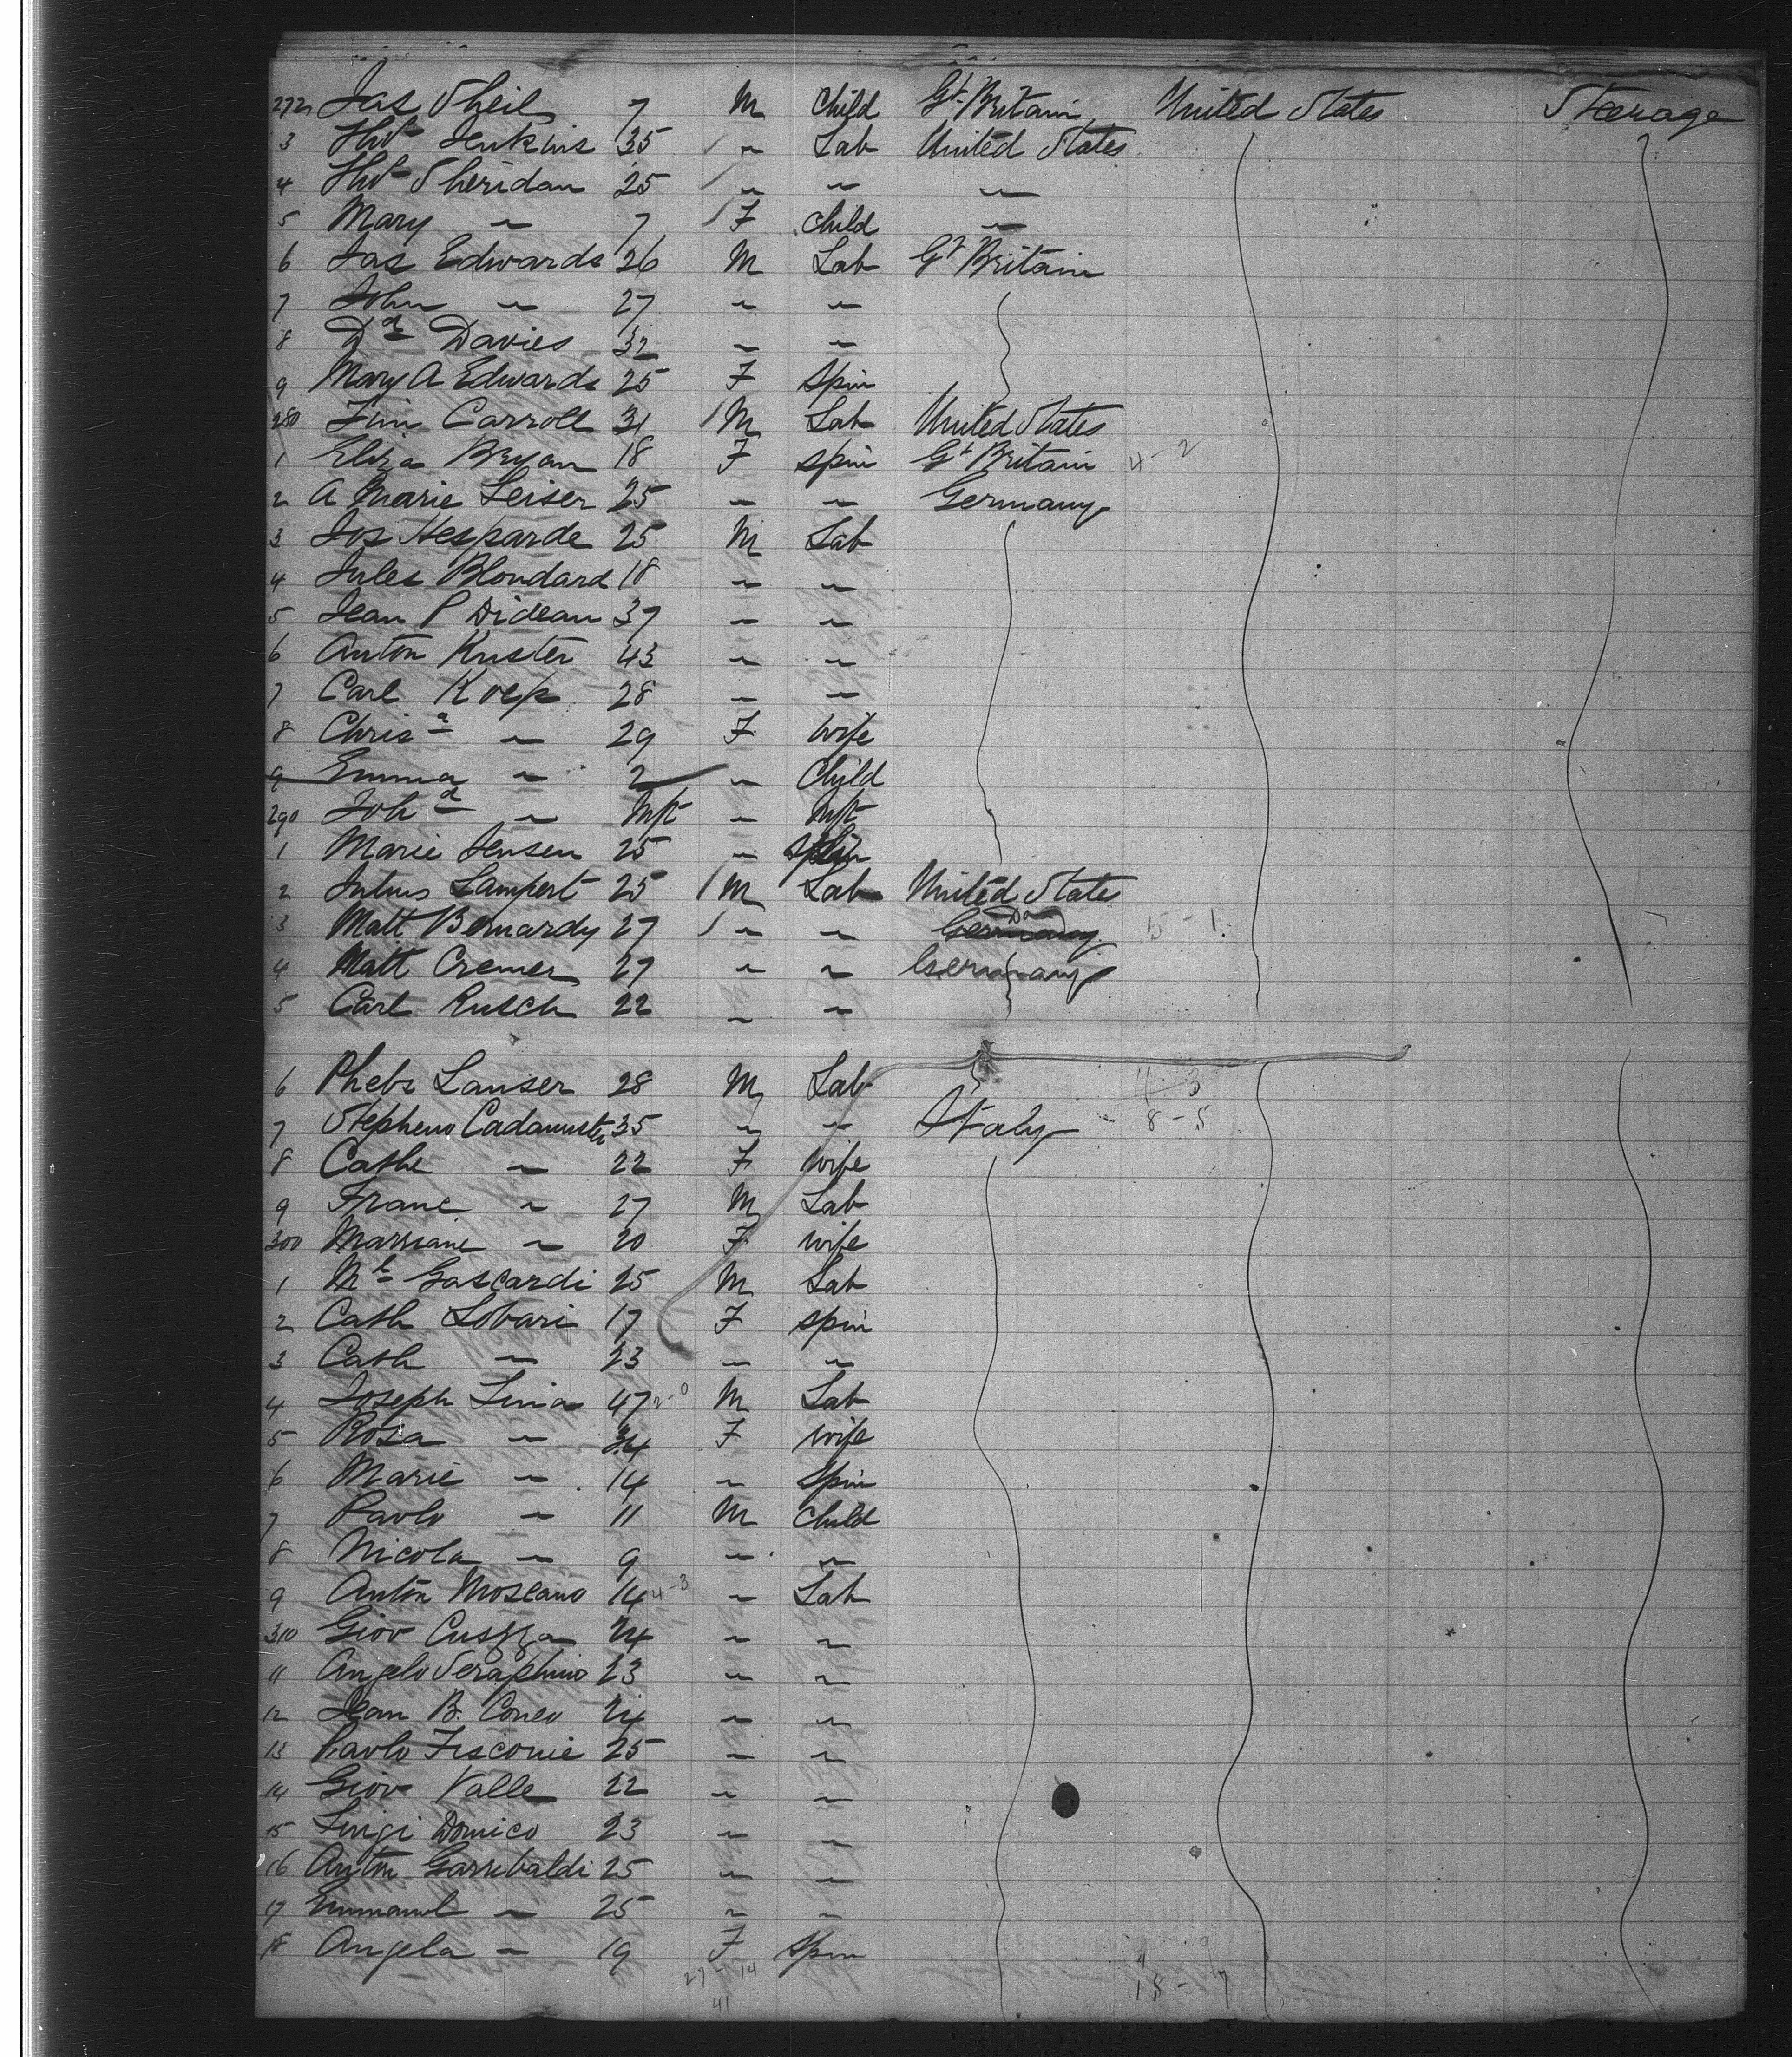 272 Jas Sheil 7 M Child Gt Britain United States Steerage
3 Thos Jenkins 35 / " Lab United States
4 Thos Sheridan 25 / " " "
5 Mary " 7 / F Child "
6 Jas Edwards 26 M Lab Gt Britain
7 John " 27 " "
8 Dd Davies 32 " "
9 Mary A Edwards 25 F Spin
280 Jim Carroll 31 / M Lab United States
1 Eliza Bryan 18 F Spin Gt Britain 4-2
2 A Marie Leiser 25 " " Germany
3 Jos Hesparde 25 M Lab
4 Jules Blondard 18 " "
5 Jean P Dideau 37 " "
6 Anton Kuster 43 " "
7 Carl Koep 28 " "
8 Chrisa " 29 F Wife
9 Emma " 2 " Child
290 Johd " Inft " Inft
1 Marie Jensen 25 " Spin
2 Julius Lampert 25 / M Lab United States
3 Matt Bernardy 27 / " " Germany Do 5-1
4 Matt Cremer 27 " " Germany
5 Carl Rusch 22 " "
6 Phebs Lanser 28 M Lab 4-3
7 Stepheno Cadamuster 35 " " Italy 8-5
8 Cathe " 22 F Wife
9 Franc " 27 M Lab
300 Marriane " 20 F Wife
1 Gascardi 25 M Lab
2 Cath Lobari 17 F Spin
3 Cath " 23 " "
4 Joseph Liria 47 2-0 M Lab
5 Rosa " 34 F Wife
6 Marie " 14 " Spin
7 Paolo " 11 M Child
8 Nicola " 9 " "
9 Anton Moscano 14 4-3 " Lab
310 Giov Cuszza 24 " "
11 Angelo Seraphino 23 " "
12 Jean B. Coneo 24 " "
13 Paolo Fisconie 25 " "
14 Giov Valle 22 " "
15 Luigi Domico 23 " "
16 Anton Garribaldi 25 " "
17 Emmanuel " 25 " "
18 Angela " 19 F Spin
27-14
41 18-7